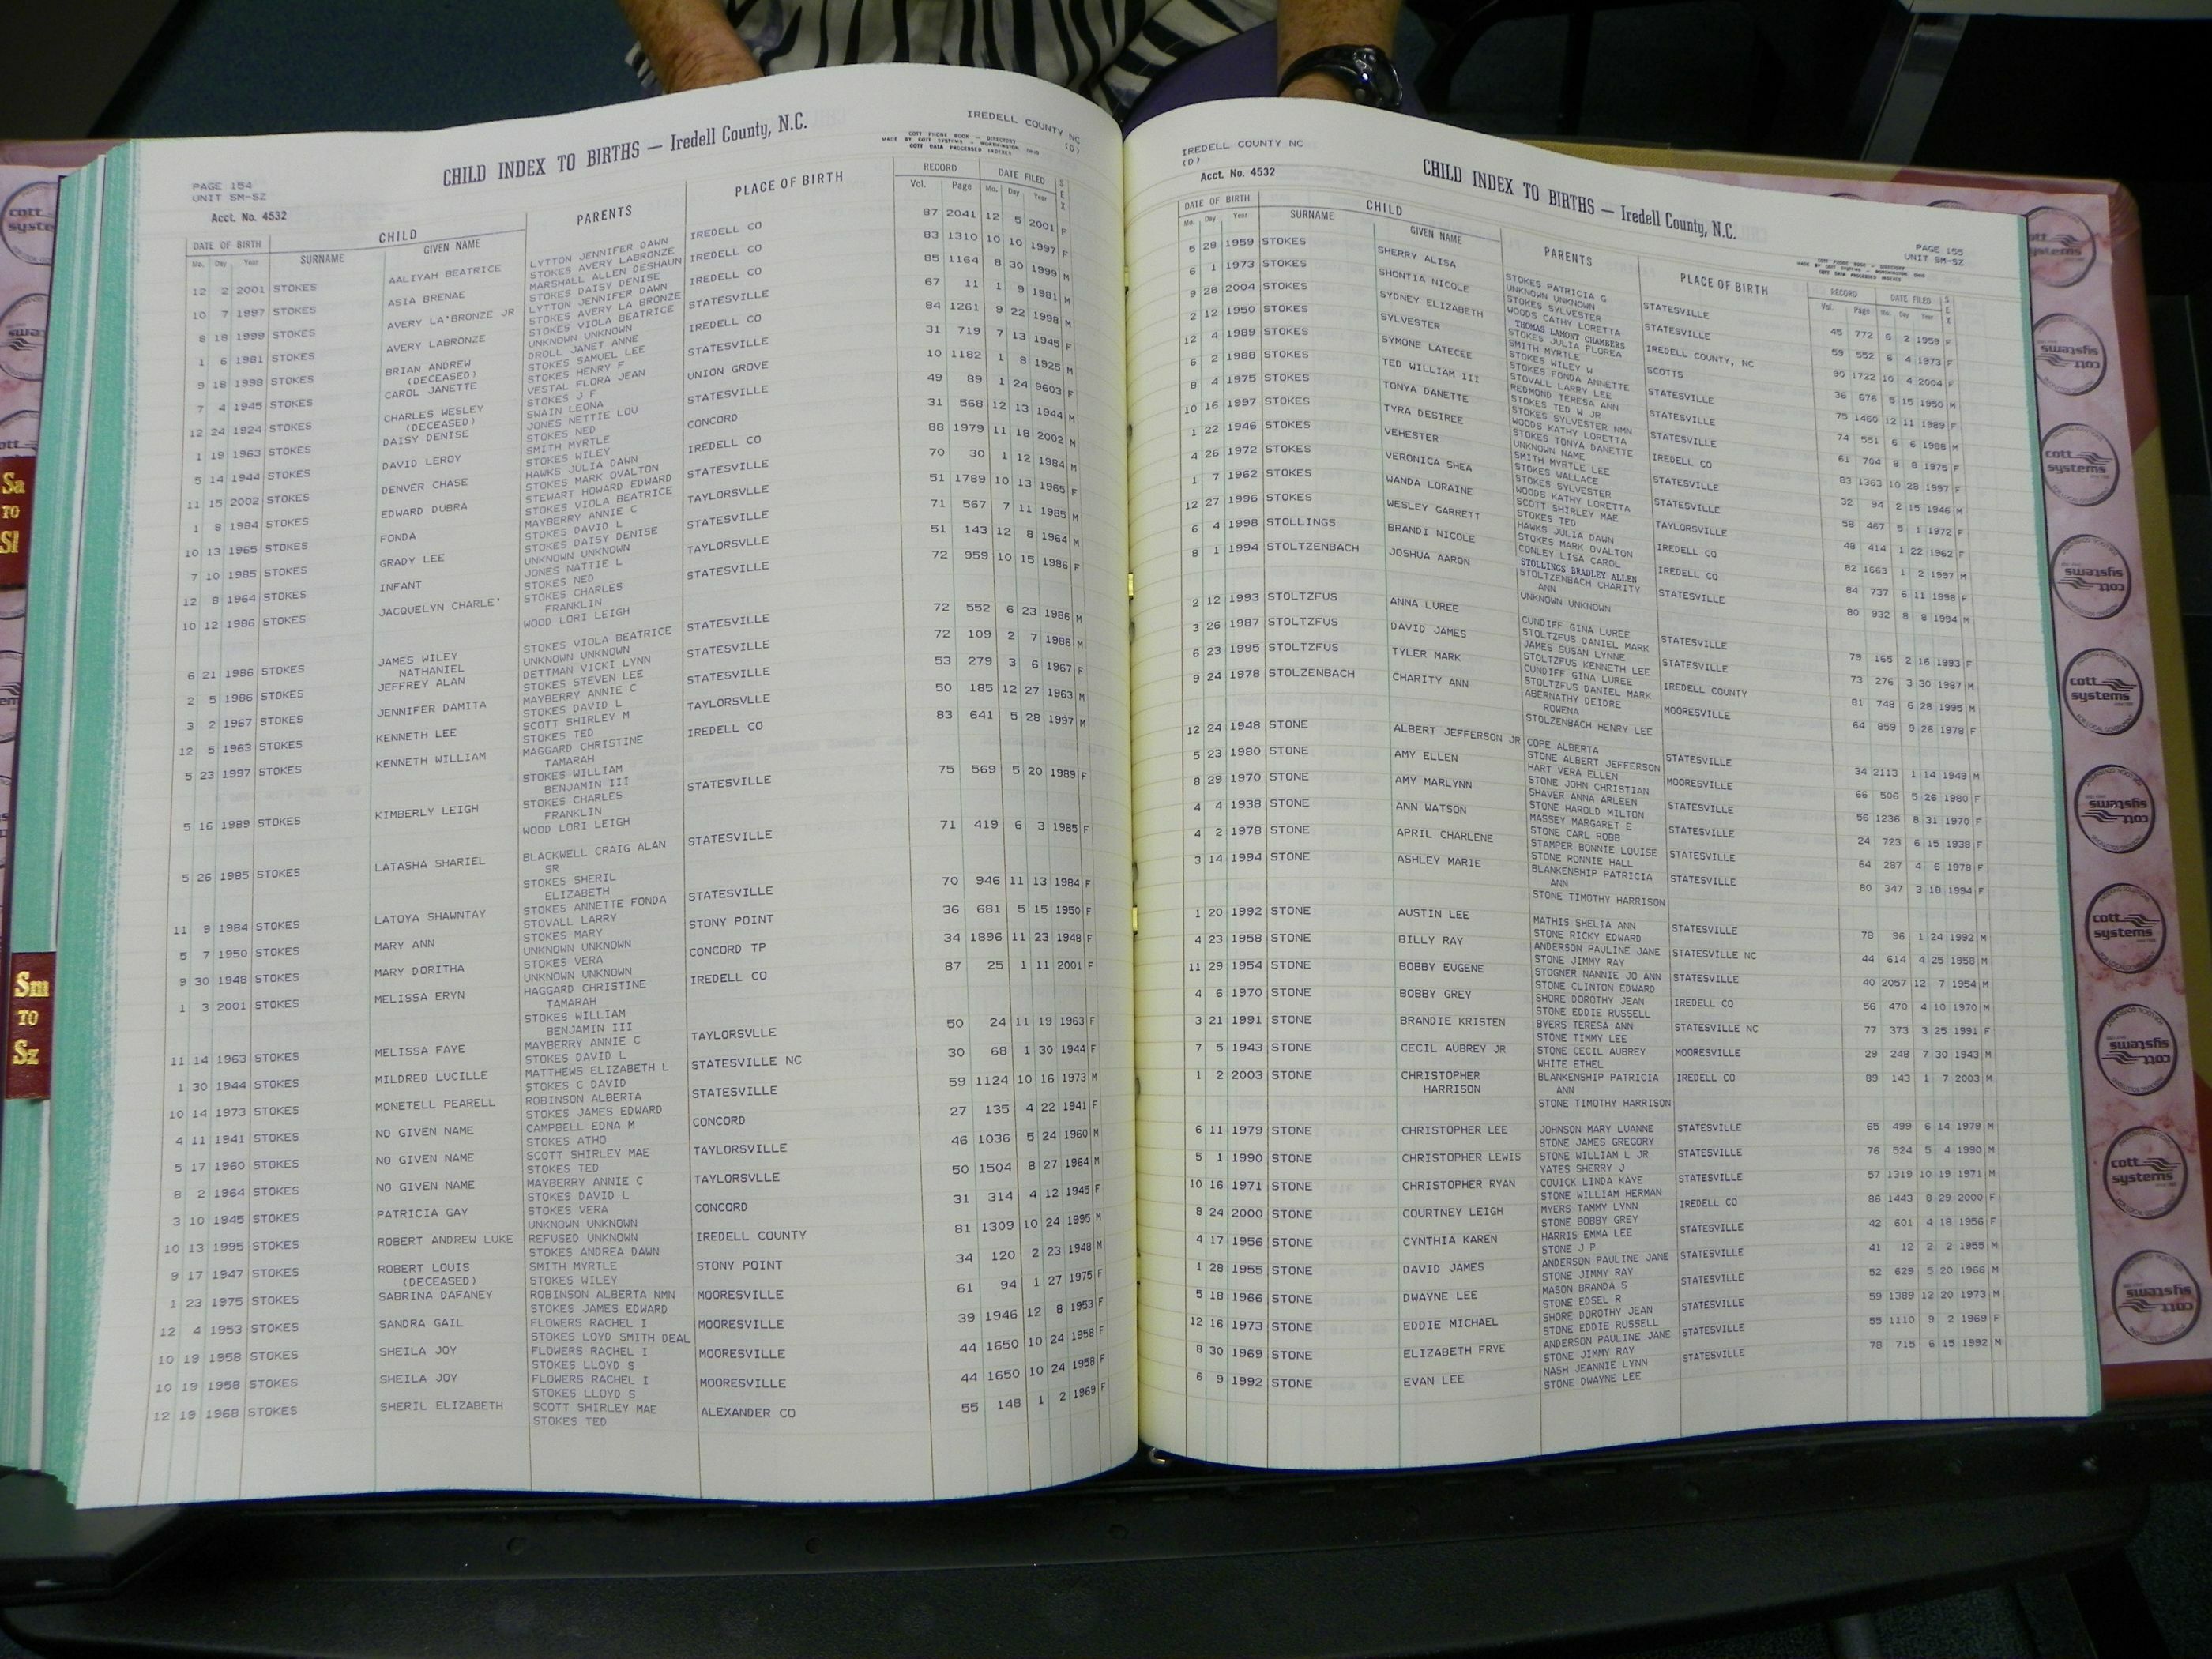 IREDELL COUNTY NC
(D)
CHILD INDEX TO BIRTHS — Iredell County, N.C.
PAGE 154
UNIT SM-SZ
Acct. No. 4532
DATE OF BIRTH CHILD PARENTS PLACE OF BIRTH RECORD DATE FILED SEX
Mo. Day Year SURNAME GIVEN NAME Vol. Page Mo. Day Year
12 2 2001 STOKES AALIYAH BEATRICE LYTTON JENNIFER DAWN IREDELL CO 87 2041 12 5 2001 F
STOKES AVERY LABRONZE
10 7 1997 STOKES ASIA BRENAE MARSHALL ALLEN DESHAUN IREDELL CO 83 1310 10 10 1997 F
STOKES DAISY DENISE
8 18 1999 STOKES AVERY LA'BRONZE JR LYTTON JENNIFER DAWN IREDELL CO 85 1164 8 30 1999 M
STOKES AVERY LA BRONZE
1 6 1981 STOKES AVERY LABRONZE STOKES VIOLA BEATRICE STATESVILLE 67 11 1 9 1981 M
UNKNOWN UNKNOWN
9 18 1998 STOKES BRIAN ANDREW DROLL JANET ANNE IREDELL CO 84 1261 9 22 1998 M
(DECEASED) STOKES SAMUEL LEE
7 4 1945 STOKES CAROL JANETTE STOKES HENRY F STATESVILLE 31 719 7 13 1945 F
VESTAL FLORA JEAN
12 24 1924 STOKES CHARLES WESLEY STOKES J F UNION GROVE 10 1182 1 8 1925 M
(DECEASED) SWAIN LEONA
1 19 1963 STOKES DAISY DENISE JONES NETTIE LOU STATESVILLE 49 89 1 24 9603 F
STOKES NED
5 14 1944 STOKES DAVID LEROY SMITH MYRTLE CONCORD 31 568 12 13 1944 M
STOKES WILEY
11 15 2002 STOKES DENVER CHASE HAWKS JULIA DAWN IREDELL CO 88 1979 11 18 2002 M
STOKES MARK OVALTON
1 8 1984 STOKES EDWARD DUBRA STEWART HOWARD EDWARD STATESVILLE 70 30 1 12 1984 M
STOKES VIOLA BEATRICE
10 13 1965 STOKES FONDA MAYBERRY ANNIE C TAYLORSVLLE 51 1789 10 13 1965 F
STOKES DAVID L
7 10 1985 STOKES GRADY LEE STOKES DAISY DENISE STATESVILLE 71 567 7 11 1985 M
UNKNOWN UNKNOWN
12 8 1964 STOKES INFANT JONES NATTIE L TAYLORSVLLE 51 143 12 8 1964 M
STOKES NED
10 12 1986 STOKES JACQUELYN CHARLE' STOKES CHARLES STATESVILLE 72 959 10 15 1986 F
FRANKLIN
WOOD LORI LEIGH
6 21 1986 STOKES JAMES WILEY STOKES VIOLA BEATRICE STATESVILLE 72 552 6 23 1986 M
NATHANIEL UNKNOWN UNKNOWN
2 5 1986 STOKES JEFFREY ALAN DETTMAN VICKI LYNN STATESVILLE 72 109 2 7 1986 M
STOKES STEVEN LEE
3 2 1967 STOKES JENNIFER DAMITA MAYBERRY ANNIE C STATESVILLE 53 279 3 6 1967 F
STOKES DAVID L
12 5 1963 STOKES KENNETH LEE SCOTT SHIRLEY M TAYLORSVLLE 50 185 12 27 1963 M
STOKES TED
5 23 1997 STOKES KENNETH WILLIAM MAGGARD CHRISTINE IREDELL CO 83 641 5 28 1997 M
TAMARAH
STOKES WILLIAM
BENJAMIN III
5 16 1989 STOKES KIMBERLY LEIGH STOKES CHARLES STATESVILLE 75 569 5 20 1989 F
FRANKLIN
WOOD LORI LEIGH
5 26 1985 STOKES LATASHA SHARIEL BLACKWELL CRAIG ALAN STATESVILLE 71 419 6 3 1985 F
SR
STOKES SHERIL
ELIZABETH
11 9 1984 STOKES LATOYA SHAWNTAY STOKES ANNETTE FONDA STATESVILLE 70 946 11 13 1984 F
STOVALL LARRY
5 7 1950 STOKES MARY ANN STOKES MARY STONY POINT 36 681 5 15 1950 F
UNKNOWN UNKNOWN
9 30 1948 STOKES MARY DORITHA STOKES VERA CONCORD TP 34 1896 11 23 1948 F
UNKNOWN UNKNOWN
1 3 2001 STOKES MELISSA ERYN HAGGARD CHRISTINE IREDELL CO 87 25 1 11 2001 F
TAMARAH
STOKES WILLIAM
BENJAMIN III
11 14 1963 STOKES MELISSA FAYE MAYBERRY ANNIE C TAYLORSVLLE 50 24 11 19 1963 F
STOKES DAVID L
1 30 1944 STOKES MILDRED LUCILLE MATTHEWS ELIZABETH L STATESVILLE NC 30 68 1 30 1944 F
STOKES C DAVID
10 14 1973 STOKES MONETELL PEARELL ROBINSON ALBERTA STATESVILLE 59 1124 10 16 1973 M
STOKES JAMES EDWARD
4 11 1941 STOKES NO GIVEN NAME CAMPBELL EDNA M CONCORD 27 135 4 22 1941 F
STOKES ATHO
5 17 1960 STOKES NO GIVEN NAME SCOTT SHIRLEY MAE TAYLORSVILLE 46 1036 5 24 1960 M
STOKES TED
8 2 1964 STOKES NO GIVEN NAME MAYBERRY ANNIE C TAYLORSVLLE 50 1504 8 27 1964 M
STOKES DAVID L
3 10 1945 STOKES PATRICIA GAY STOKES VERA CONCORD 31 314 4 12 1945 F
UNKNOWN UNKNOWN
10 13 1995 STOKES ROBERT ANDREW LUKE REFUSED UNKNOWN IREDELL COUNTY 81 1309 10 24 1995 M
STOKES ANDREA DAWN
9 17 1947 STOKES ROBERT LOUIS SMITH MYRTLE STONY POINT 34 120 2 23 1948 M
(DECEASED) STOKES WILEY
1 23 1975 STOKES SABRINA DAFANEY ROBINSON ALBERTA NMN MOORESVILLE 61 94 1 27 1975 F
STOKES JAMES EDWARD
12 4 1953 STOKES SANDRA GAIL FLOWERS RACHEL I MOORESVILLE 39 1946 12 8 1953 F
STOKES LOYD SMITH DEAL
10 19 1958 STOKES SHEILA JOY FLOWERS RACHEL I MOORESVILLE 44 1650 10 24 1958 F
STOKES LLOYD S
10 19 1958 STOKES SHEILA JOY FLOWERS RACHEL I MOORESVILLE 44 1650 10 24 1958 F
STOKES LLOYD S
12 19 1968 STOKES SHERIL ELIZABETH SCOTT SHIRLEY MAE ALEXANDER CO 55 148 1 2 1969 F
STOKES TED
IREDELL COUNTY NC
(D)
Acct. No. 4532
CHILD INDEX TO BIRTHS — Iredell County, N.C.
PAGE 155
UNIT SM-SZ
DATE OF BIRTH CHILD PARENTS PLACE OF BIRTH RECORD DATE FILED SEX
Mo. Day Year SURNAME GIVEN NAME Vol. Page Mo. Day Year
5 28 1959 STOKES SHERRY ALISA STOKES PATRICIA G STATESVILLE 45 772 6 2 1959 F
UNKNOWN UNKNOWN
6 1 1973 STOKES SHONTIA NICOLE STOKES SYLVESTER STATESVILLE 59 552 6 4 1973 F
WOODS CATHY LORETTA
9 28 2004 STOKES SYDNEY ELIZABETH THOMAS LAMONT CHAMBERS IREDELL COUNTY, NC 90 1722 10 4 2004 F
STOKES JULIA FLOREA
2 12 1950 STOKES SYLVESTER SMITH MYRTLE SCOTTS 36 676 5 15 1950 M
STOKES WILEY W
12 4 1989 STOKES SYMONE LATECEE STOKES FONDA ANNETTE STATESVILLE 75 1460 12 11 1989 F
STOVALL LARRY LEE
6 2 1988 STOKES TED WILLIAM III REDMOND TERESA ANN STATESVILLE 74 551 6 6 1988 M
STOKES TED W JR
8 4 1975 STOKES TONYA DANETTE STOKES SYLVESTER NMN IREDELL CO 61 704 8 8 1975 F
WOODS KATHY LORETTA
10 16 1997 STOKES TYRA DESIREE STOKES TONYA DANETTE STATESVILLE 83 1363 10 28 1997 F
UNKNOWN NAME
1 22 1946 STOKES VEHESTER SMITH MYRTLE LEE STATESVILLE 32 94 2 15 1946 M
STOKES WALLACE
4 26 1972 STOKES VERONICA SHEA STOKES SYLVESTER TAYLORSVILLE 58 467 5 1 1972 F
WOODS KATHY LORETTA
1 7 1962 STOKES WANDA LORAINE SCOTT SHIRLEY MAE IREDELL CO 48 414 1 22 1962 F
STOKES TED
12 27 1996 STOKES WESLEY GARRETT HAWKS JULIA DAWN IREDELL CO 82 1663 1 2 1997 M
STOKES MARK OVALTON
6 4 1998 STOLLINGS BRANDI NICOLE CONLEY LISA CAROL STATESVILLE 84 737 6 11 1998 F
STOLLINGS BRADLEY ALLEN
8 1 1994 STOLTZENBACH JOSHUA AARON STOLTZENBACH CHARITY 80 932 8 8 1994 M
ANN
UNKNOWN UNKNOWN
2 12 1993 STOLTZFUS ANNA LUREE CUNDIFF GINA LUREE STATESVILLE 79 165 2 16 1993 F
STOLTZFUS DANIEL MARK
3 26 1987 STOLTZFUS DAVID JAMES JAMES SUSAN LYNNE STATESVILLE 73 276 3 30 1987 M
STOLTZFUS KENNETH LEE
6 23 1995 STOLTZFUS TYLER MARK CUNDIFF GINA LUREE IREDELL COUNTY 81 748 6 28 1995 M
STOLTZFUS DANIEL MARK
9 24 1978 STOLZENBACH CHARITY ANN ABERNATHY DEIDRE MOORESVILLE 64 859 9 26 1978 F
ROWENA
STOLZENBACH HENRY LEE
12 24 1948 STONE ALBERT JEFFERSON JR COPE ALBERTA STATESVILLE 34 2113 1 14 1949 M
STONE ALBERT JEFFERSON
5 23 1980 STONE AMY ELLEN HART VERA ELLEN MOORESVILLE 66 506 5 26 1980 F
STONE JOHN CHRISTIAN
8 29 1970 STONE AMY MARLYNN SHAVER ANNA ARLEEN STATESVILLE 56 1236 8 31 1970 F
STONE HAROLD MILTON
4 4 1938 STONE ANN WATSON MASSEY MARGARET E STATESVILLE 24 723 6 15 1938 F
STONE CARL ROBB
4 2 1978 STONE APRIL CHARLENE STAMPER BONNIE LOUISE STATESVILLE 64 287 4 6 1978 F
STONE RONNIE HALL
3 14 1994 STONE ASHLEY MARIE BLANKENSHIP PATRICIA STATESVILLE 80 347 3 18 1994 F
ANN
STONE TIMOTHY HARRISON
1 20 1992 STONE AUSTIN LEE MATHIS SHELIA ANN STATESVILLE 78 96 1 24 1992 M
STONE RICKY EDWARD
4 23 1958 STONE BILLY RAY ANDERSON PAULINE JANE STATESVILLE NC 44 614 4 25 1958 M
STONE JIMMY RAY
11 29 1954 STONE BOBBY EUGENE STOGNER NANNIE JO ANN STATESVILLE 40 2057 12 7 1954 M
STONE CLINTON EDWARD
4 6 1970 STONE BOBBY GREY SHORE DOROTHY JEAN IREDELL CO 56 470 4 10 1970 M
STONE EDDIE RUSSELL
3 21 1991 STONE BRANDIE KRISTEN BYERS TERESA ANN STATESVILLE NC 77 373 3 25 1991 F
STONE TIMMY LEE
7 5 1943 STONE CECIL AUBREY JR STONE CECIL AUBREY MOORESVILLE 29 248 7 30 1943 M
WHITE ETHEL
1 2 2003 STONE CHRISTOPHER BLANKENSHIP PATRICIA IREDELL CO 89 143 1 7 2003 M
HARRISON ANN
STONE TIMOTHY HARRISON
6 11 1979 STONE CHRISTOPHER LEE JOHNSON MARY LUANNE STATESVILLE 65 499 6 14 1979 M
STONE JAMES GREGORY
5 1 1990 STONE CHRISTOPHER LEWIS STONE WILLIAM L JR STATESVILLE 76 524 5 4 1990 M
YATES SHERRY J
10 16 1971 STONE CHRISTOPHER RYAN COUICK LINDA KAYE STATESVILLE 57 1319 10 19 1971 M
STONE WILLIAM HERMAN
8 24 2000 STONE COURTNEY LEIGH MYERS TAMMY LYNN IREDELL CO 86 1443 8 29 2000 F
STONE BOBBY GREY
4 17 1956 STONE CYNTHIA KAREN HARRIS EMMA LEE STATESVILLE 42 601 4 18 1956 F
STONE J P
1 28 1955 STONE DAVID JAMES ANDERSON PAULINE JANE STATESVILLE 41 12 2 2 1955 M
STONE JIMMY RAY
5 18 1966 STONE DWAYNE LEE MASON BRANDA S STATESVILLE 52 629 5 20 1966 M
STONE EDSEL R
12 16 1973 STONE EDDIE MICHAEL SHORE DOROTHY JEAN STATESVILLE 59 1389 12 20 1973 M
STONE EDDIE RUSSELL
8 30 1969 STONE ELIZABETH FRYE ANDERSON PAULINE JANE STATESVILLE 55 1110 9 2 1969 F
STONE JIMMY RAY
6 9 1992 STONE EVAN LEE NASH JEANNIE LYNN STATESVILLE 78 715 6 15 1992 M
STONE DWAYNE LEE
Sa
TO
Sl
Sm
TO
Sz
cott
systems